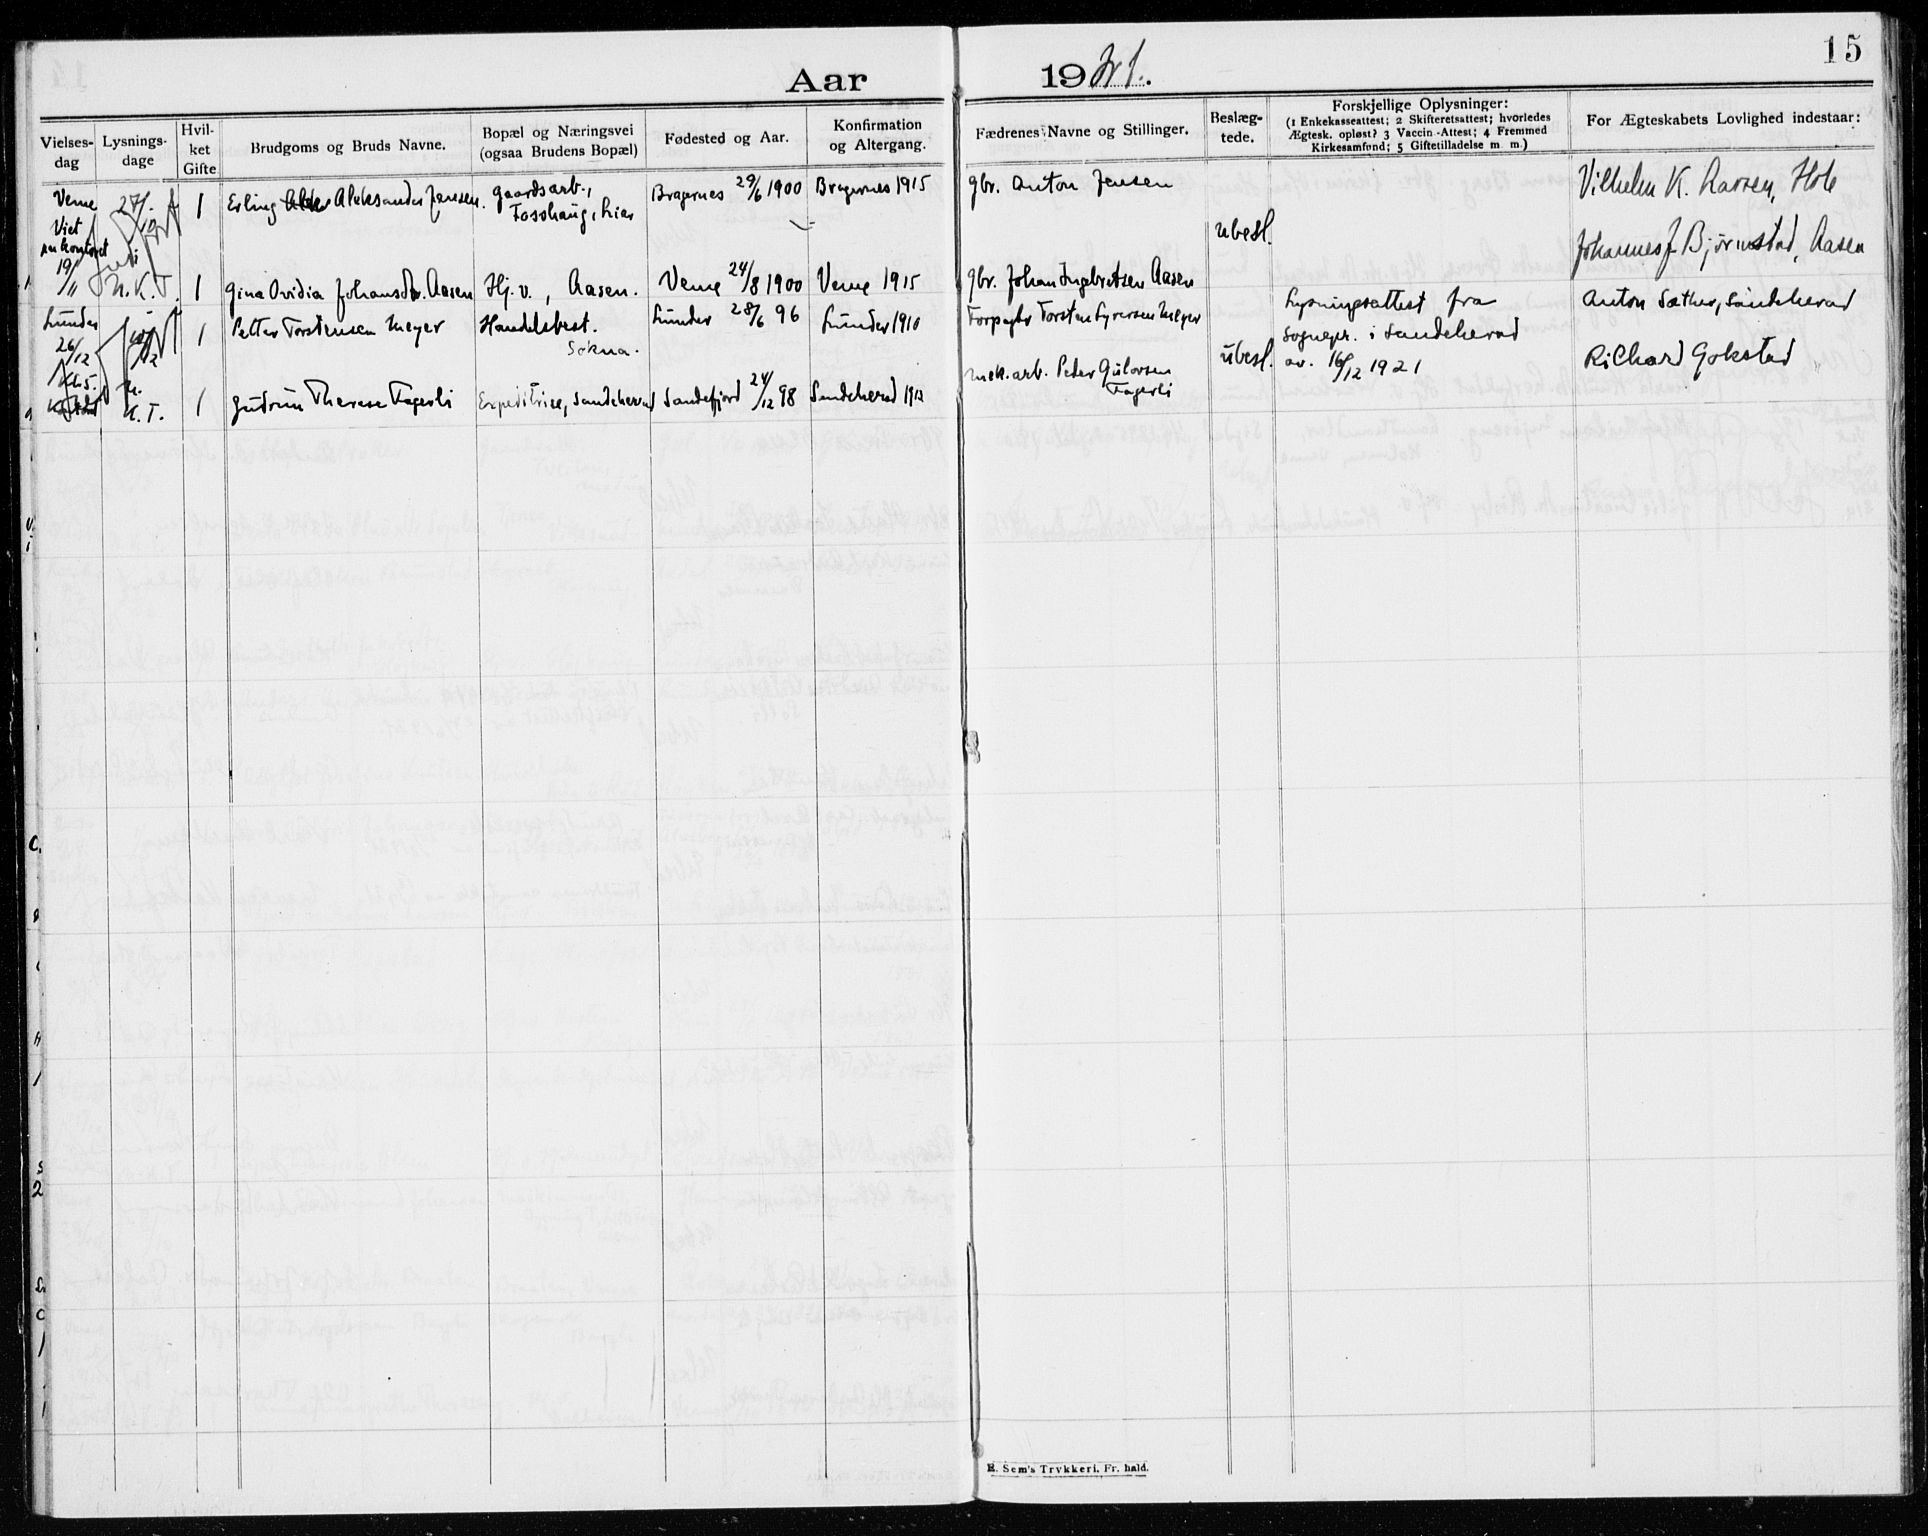 15
Aar 1921.
Vielses-dag
Lysnings-dage
Hvil-ket Gifte
Brudgoms og Bruds Navne.
Bopæl og Næringsvei (ogsaa Brudens Bopæl)
Fødested og Aar.
Konfirmation og Altergang.
Fædrenes Navne og Stillinger.
Beslæg-tede.
Forskjellige Oplysninger:
(1 Enkekasseattest; 2 Skifteretsattest; hvorledes
Ægtesk. opløst? 3 Vaccin-Attest; 4 Fremmed
Kirkesamfund; 5 Giftetilladelse m. m.)
For Ægteskabets Lovlighed indestaar:
Veme 1 Erling Aleksander Jensen. Gaardsarb., Bragernes 29/6 1900 Bragernes 1915 gbr. Anton Jensen Vilhelm K. Larsen, Hole
Viet Fosshaug, Lier
paa kontoret ubesl. Johannes J Bjørnstad, Aasen
19/11 N. K. T. 1 Gina Ovidia Johansdtr. Aasen Hj. v., Aasen. Veme 24/8 1900 Veme 1915 gbr. Johan Ingebretsen Aasen
Lunder 1 Petter Torstensen Meyer Handelsbest. Lunder 28/6 96 Lunder 1910 Forpagter Torsten Syversen Meyer Lysningsattest fra Anton Sæther, Sandeherad
26/12 Sokna. ubesl. sognepr. i Sandeherad
Kl. 5. av. 16/12 1921 Richard Gokstad
K. T. 1 Gudrun Therese Fagerli Expeditrise, Sandeherad Sandefjord 24/12 98 Sandeherad 1913 mek. arb. Peder Gulovsen
Fagerli
E. Sem's Trykkeri, Fr. hald.